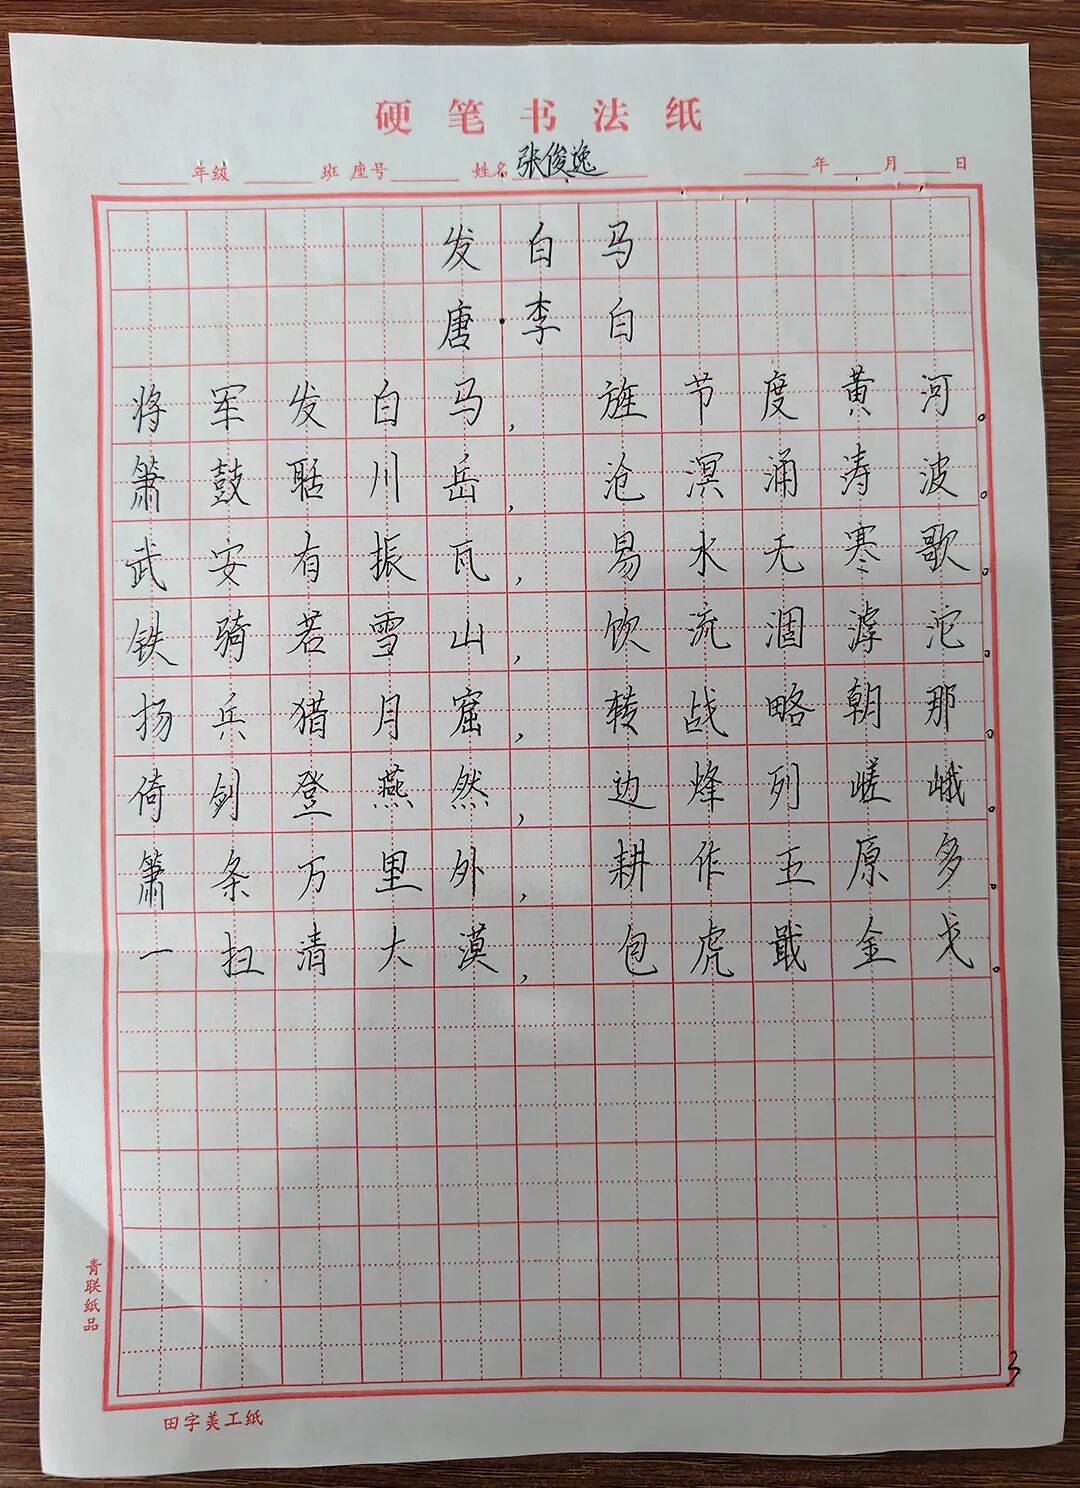 硬笔书法纸
年级 班 座号 姓名 张俊逸 年 月 日
发白马
唐·李白
将军发白马，旌节度黄河。
箫鼓聒川岳，沧溟涌涛波。
武安有振瓦，易水无寒歌。
铁骑若雪山，饮流涸滹沱。
扬兵猎月窟，转战略朝那。
倚剑登燕然，边烽列嵯峨。
箫条万里外，耕作五原多。
一扫清大漠，包虎戢金戈。
青联纸品
田字美工纸
3